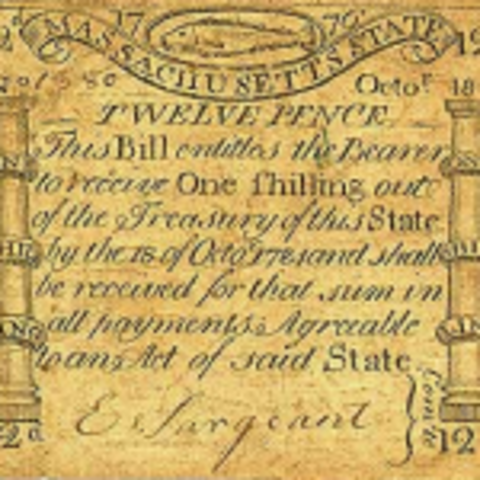 17 79
MASSACHUSETTS STATE
12
No 1580 Octor 18
TWELVE PENCE
This Bill entitles the Bearer
to receive One ſhilling out
of the Treasury of this State
by the 18 of Octor 1781 and shall
be received for that sum in
all payments Agreeable
to an Act of said State
E Sargeant
12d 12